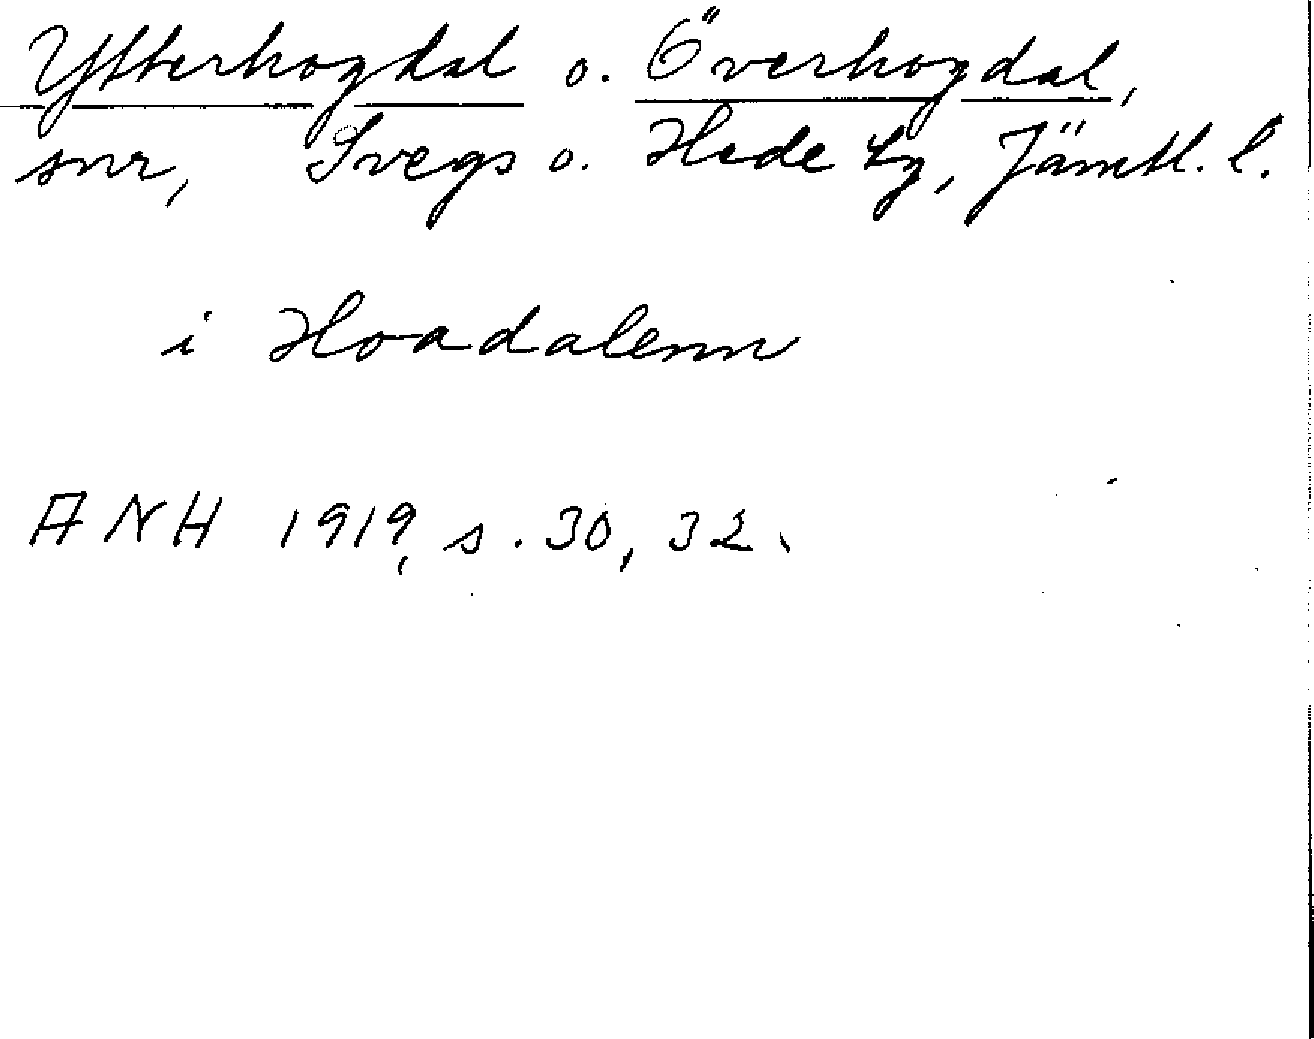 Ytterhogdal o. Överhogdal,
snr, Svegs o. Hede tg, Jämtl. l.
i Hoadalenn
ANH 1919, s. 30, 32.